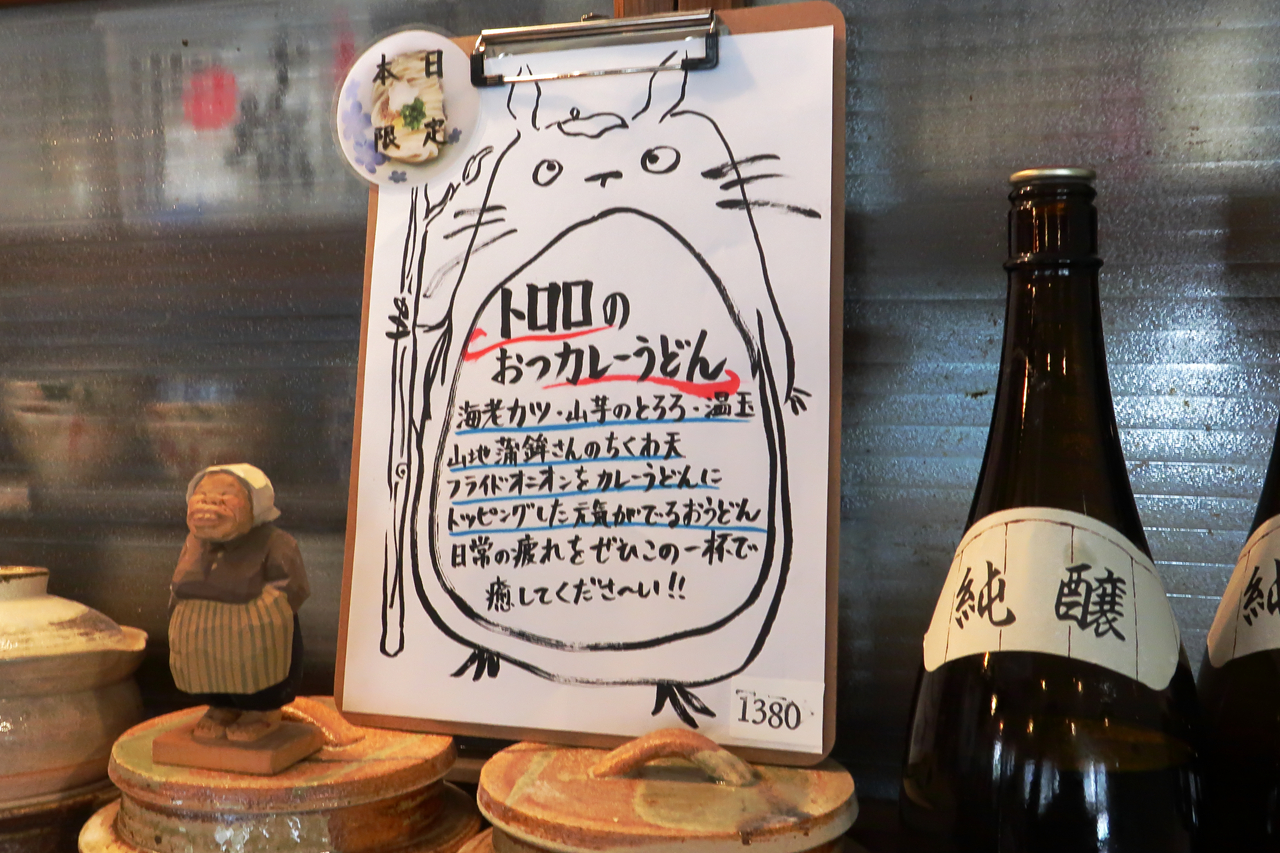 本日
限定
トロロの
おつカレーうどん
海老カツ・山芋のとろろ・温玉
山地蒲鉾さんのちくわ天
フライドオニオンをカレーうどんに
トッピングした元気がでるおうどん
日常の疲れをぜひこの一杯で
癒してくださ〜い!!
1380
純 醸
純